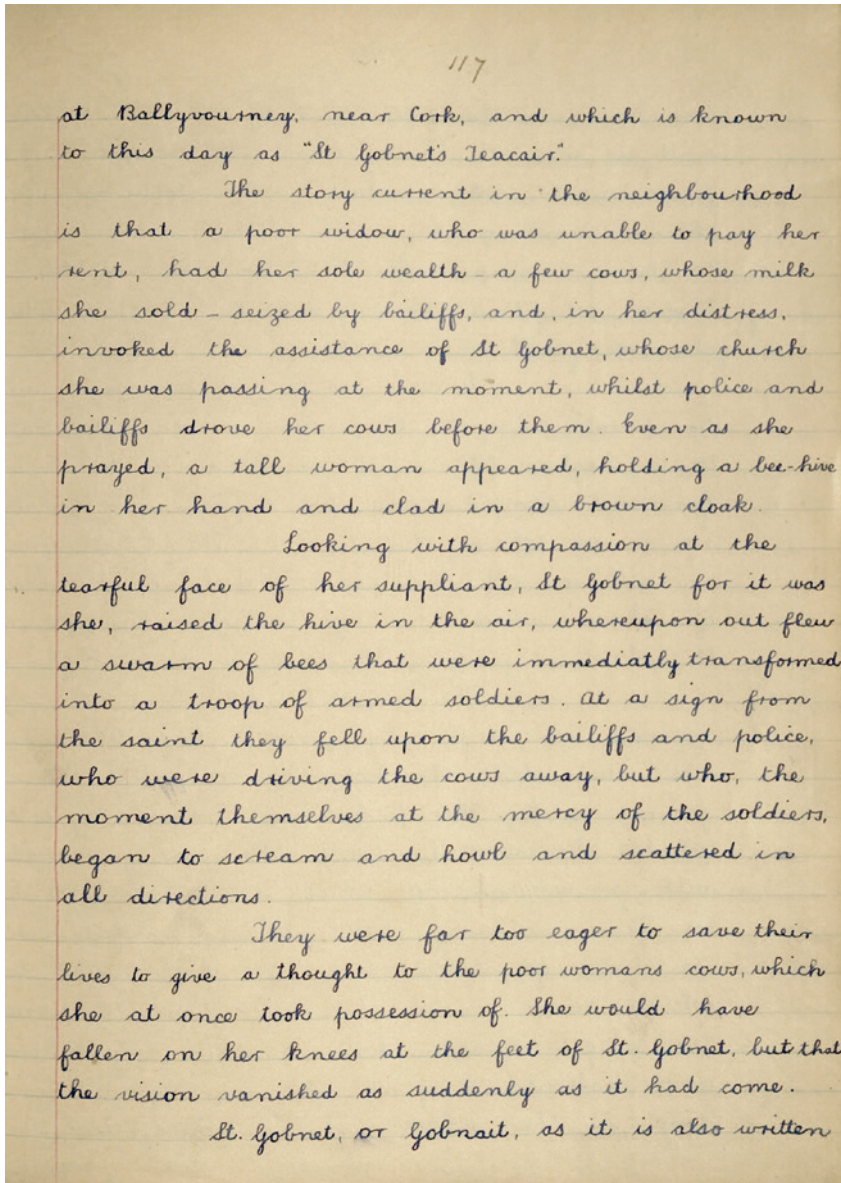 117
at Ballyvourney, near Cork, and which is known
to this day as "St Gobnet's Teacair."
The story current in the neighbourhood
is that a poor widow, who was unable to pay her
rent, had her sole wealth - a few cows, whose milk
she sold - seized by bailiffs, and, in her distress,
invoked the assistance of St Gobnet, whose church
she was passing at the moment, whilst police and
bailiffs drove her cows before them. Even as she
prayed, a tall woman appeared, holding a bee-hive
in her hand and clad in a brown cloak.
Looking with compassion at the
tearful face of her suppliant, St Gobnet for it was
she, raised the hive in the air, whereupon out flew
a swarm of bees that were immediatly transformed
into a troop of armed soldiers. At a sign from
the saint they fell upon the bailiffs and police,
who were driving the cows away, but who, the
moment themselves at the mercy of the soldiers,
began to scream and howl and scattered in
all directions.
They were far too eager to save their
lives to give a thought to the poor womans cows, which
she at once took possession of. She would have
fallen on her knees at the feet of St. Gobnet, but that
the vision vanished as suddenly as it had come.
St. Gobnet, or Gobnait, as it is also written